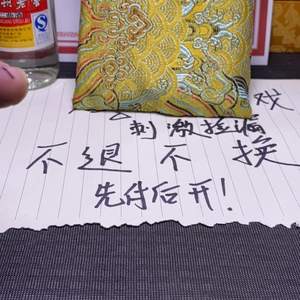 戏
刺激捡漏
不退不换
先付后开!